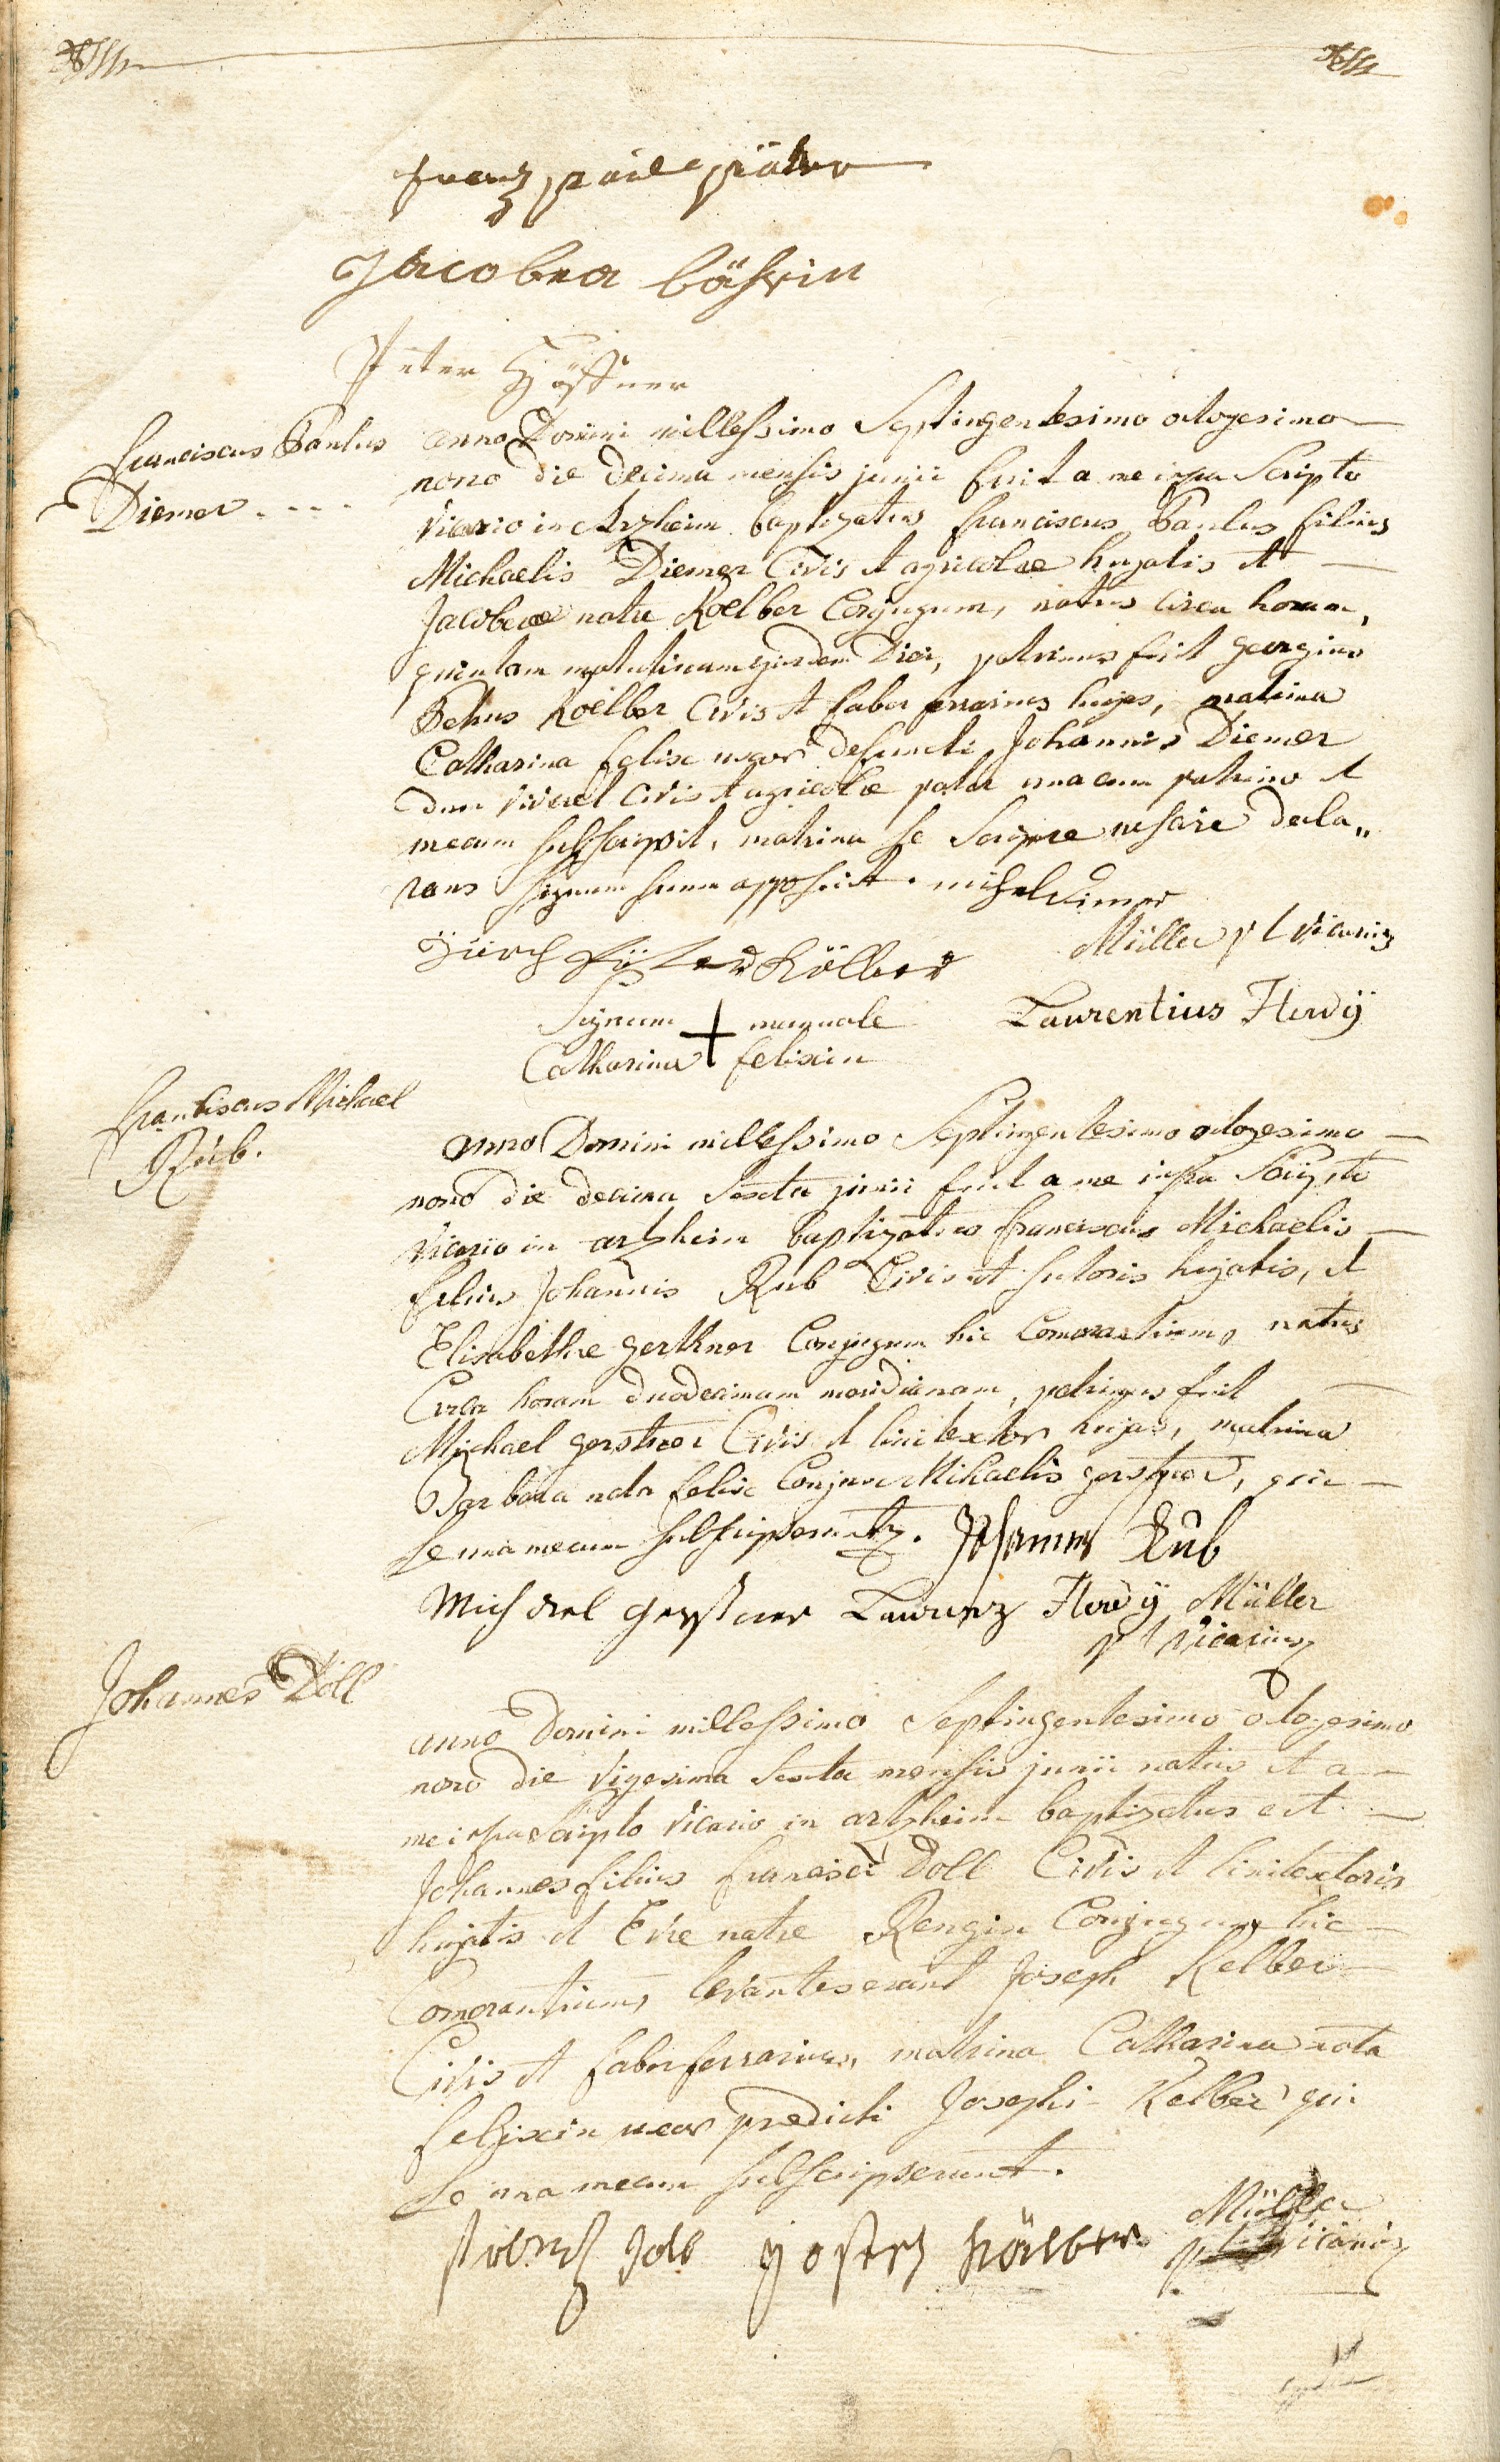 franz
Jacobea bährin
Peter Hössner
franciscus Paulus
Diemer
anno Domini millessimo Septingentesimo octogesimo
nono die decima mensis junii fuit a me infra Scripto
Vicario in Arzheim baptizatus franciscus Paulus filius
Michaelis Diemer Civis et agricolæ hujatis et
Jacobeæ natæ Koelber Conjugum, natus circa horam
quintam matutinam ejusdem Diei, patrinus fuit georgius
Petrus Koelber Civis et faber ferrarius hujas, matrina
Catharina felix uxor defuncti Johannis Diemer
dum viveret Civis et agricolæ pater una cum patrino et
mecum subscripsit, matrina se Scribere nescire decla„
rans signum suum apposuit. michel Dimer
Jürch Köllber
Müller p t vicarius
Signum + manuale
Catharina felixin
Laurentius Flory
franciscus Michael
Rub.
anno Domini millessimo Septingentesimo octogesimo
nono die decima Sexta junii fuit a me infra Scripto
Vicario in arzheim baptizatus franciscus Michaelis
filius Johannis Rub Civis et sutoris hujatis, et
Elisabethæ gerstner Conjugum hic Comorantium, natus
Circa horam duodecimam meridianam, patrinus fuit
Michael gerstner Civis et linitextor hujas, matrina
Barbara nata felix Conjux Mihaelis gerstner, qui
se una mecum subscripserunt. Johannes Rub
Michael gerstner Laurenz Flory Müller
p t vicarius
Johannes Doll
anno Domini millessimo Septingentesimo octogesimo
nono die Vigesima Sexta mensis junii natus et a
me infra Scripto Vicario in arzheim baptizatus est
Johannes filius francisci Doll Civis et linitextoris
hujatis et Evæ natæ Rengin Conjugum hic
Comorantium, levantes erant Joseph Kelber
Civis et faber ferrarius, matrina Catharina nata
felixin uxor predicti Josephi Kelber qui
se una mecum subscripserunt.
Doll Joseph Kälber
Müller
p t vicarius